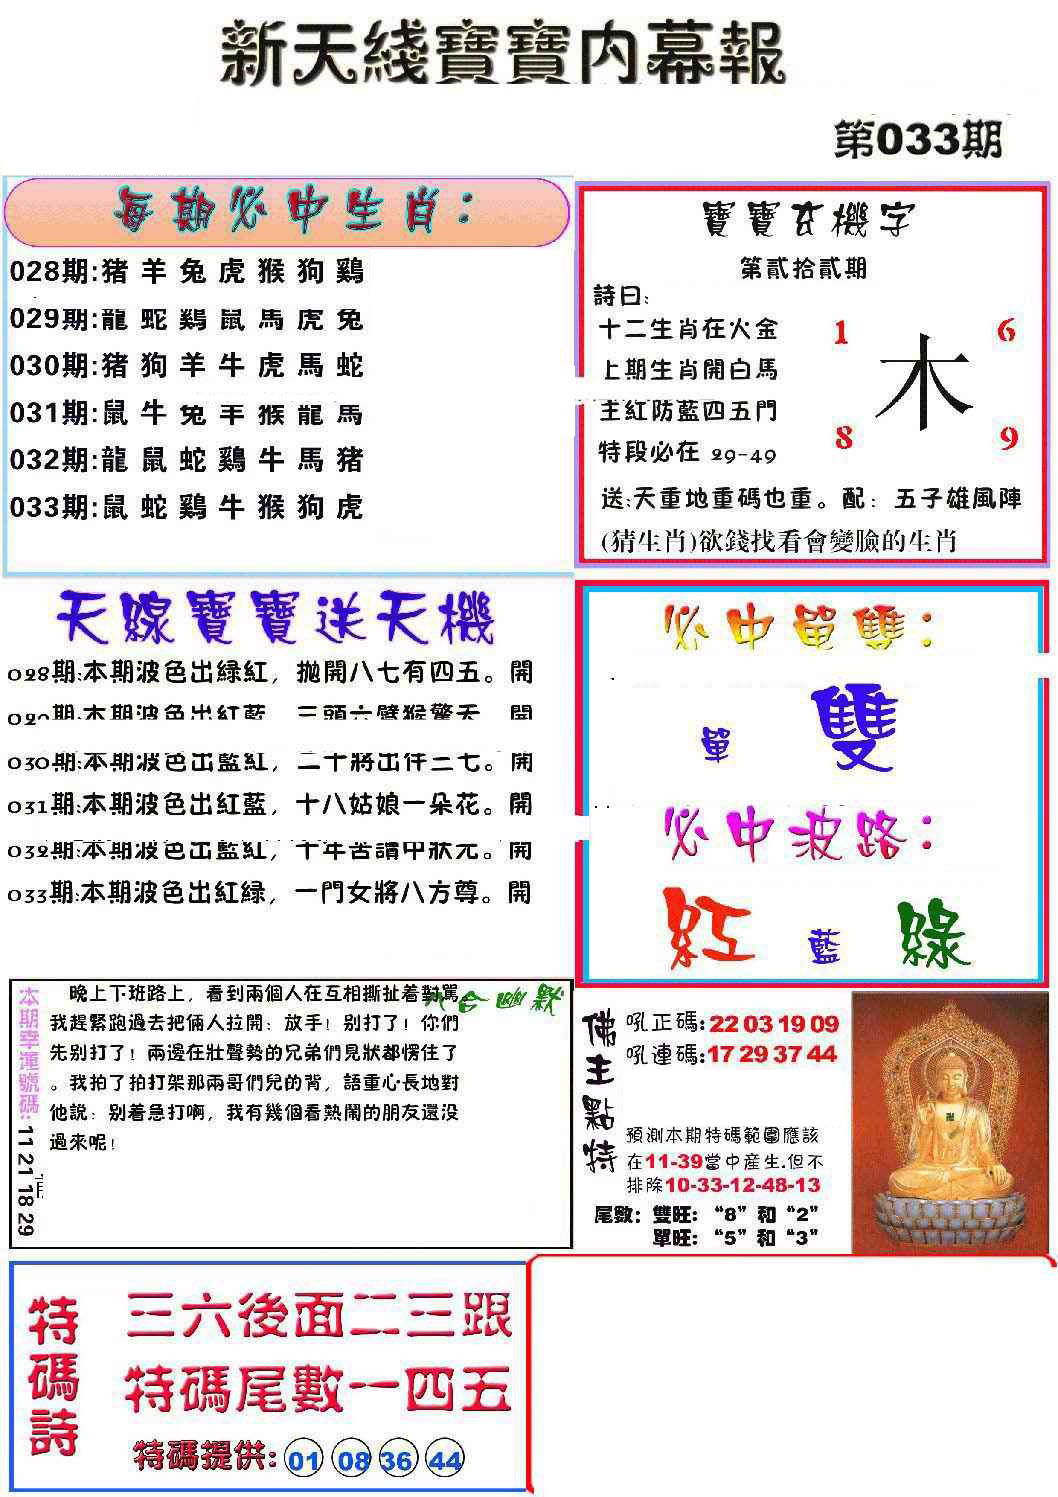 新天綫寶寶内幕報
第033期
每期必中生肖：
028期:猪 羊 兔 虎 猴 狗 鷄
029期:龍 蛇 鷄 鼠 馬 虎 兔
030期:猪 狗 羊 牛 虎 馬 蛇
031期:鼠 牛 兔 羊 猴 龍 馬
032期:龍 鼠 蛇 鷄 牛 馬 猪
033期:鼠 蛇 鷄 牛 猴 狗 虎
寶寶玄機字
第貳拾貳期
詩曰：
十二生肖在火金
上期生肖開白馬
主紅防藍四五門
特段必在 29-49
1 6
木
8 9
送:天重地重碼也重。配：五子雄風陣
(猜生肖)欲錢找看會變臉的生肖
天線寶寶送天機
028期:本期波色出緑紅，抛開八七有四五。開
029期:本期波色出紅藍，三頭六臂猴驚天。開
030期:本期波色出藍紅，二十將出伴三七。開
031期:本期波色出紅藍，十八姑娘一朵花。開
032期:本期波色出藍紅，十年苦讀中狀元。開
033期:本期波色出紅緑，一門女將八方尊。開
必中單雙：
單 雙
必中波路：
紅 藍 綠
本期幸運號碼:11 21 18 29
六合幽默
晚上下班路上，看到兩個人在互相撕扯着對駡。
我趕緊跑過去把倆人拉開：放手！别打了！你們
先别打了！兩邊在壯聲勢的兄弟們見狀都愣住了
。我拍了拍打架那兩哥們兒的背，語重心長地對
他説：别着急打啊，我有幾個看熱鬧的朋友還没
過來呢！
佛主點特
吼正碼:22 03 19 09
吼連碼:17 29 37 44
預測本期特碼範圍應該
在11-39當中産生.但不
排除10-33-12-48-13
尾數：雙旺：“8”和“2”
單旺：“5”和“3”
特碼詩
三六後面二三跟
特碼尾數一四五
特碼提供: 01 08 36 44